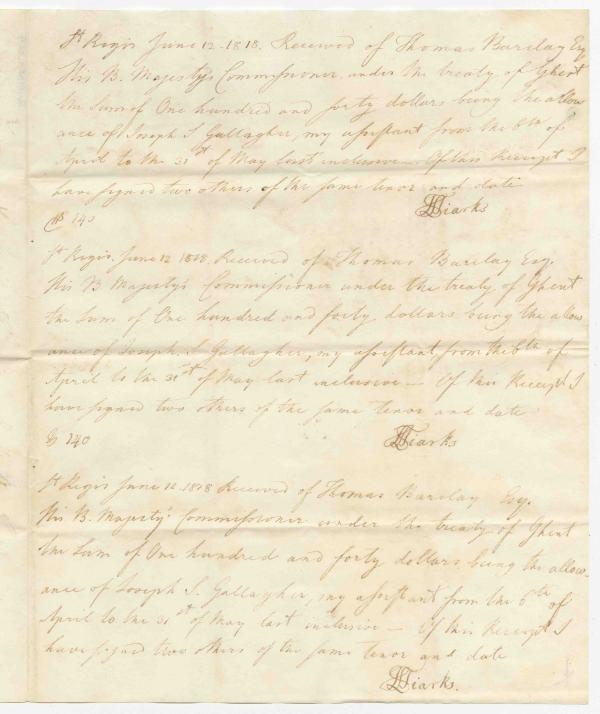 St Regis June 12-1818. Received of Thomas Barclay Esq
His B. Majesty's Commissioner under the treaty of Ghent
the Sum of One hundred and forty dollars being the allow
ance of Joseph S. Gallagher, my assistant from the 6th of
April to the 31st of May last inclusive— Of this Receipt I
have signed two others of the same tenor and date
Tiarks
$ 140
St Regis. June 12 1818. Received of Thomas Barclay Esq.
His B Majesty's Commissioner under the treaty of Ghent
the Sum of One hundred and forty dollars being the allow
ance of Joseph. S Gallagher, my assistant, from the 6th of
April to the 31st of May last inclusive— Of this Receipt I
have signed two others of the same tenor and date
$ 140
Tiarks
St Regis June 12 1818 Received of Thomas Barclay Esq.
His B. Majesty's Commissioner under the treaty of Ghent
the Sum of One hundred and forty dollars, being the allow-
ance of Joseph S. Gallagher, my assistant from the 6th of
April to the 31st of May last inclusive— Of this Receipt I
have signed two others of the same tenor and date
Tiarks.